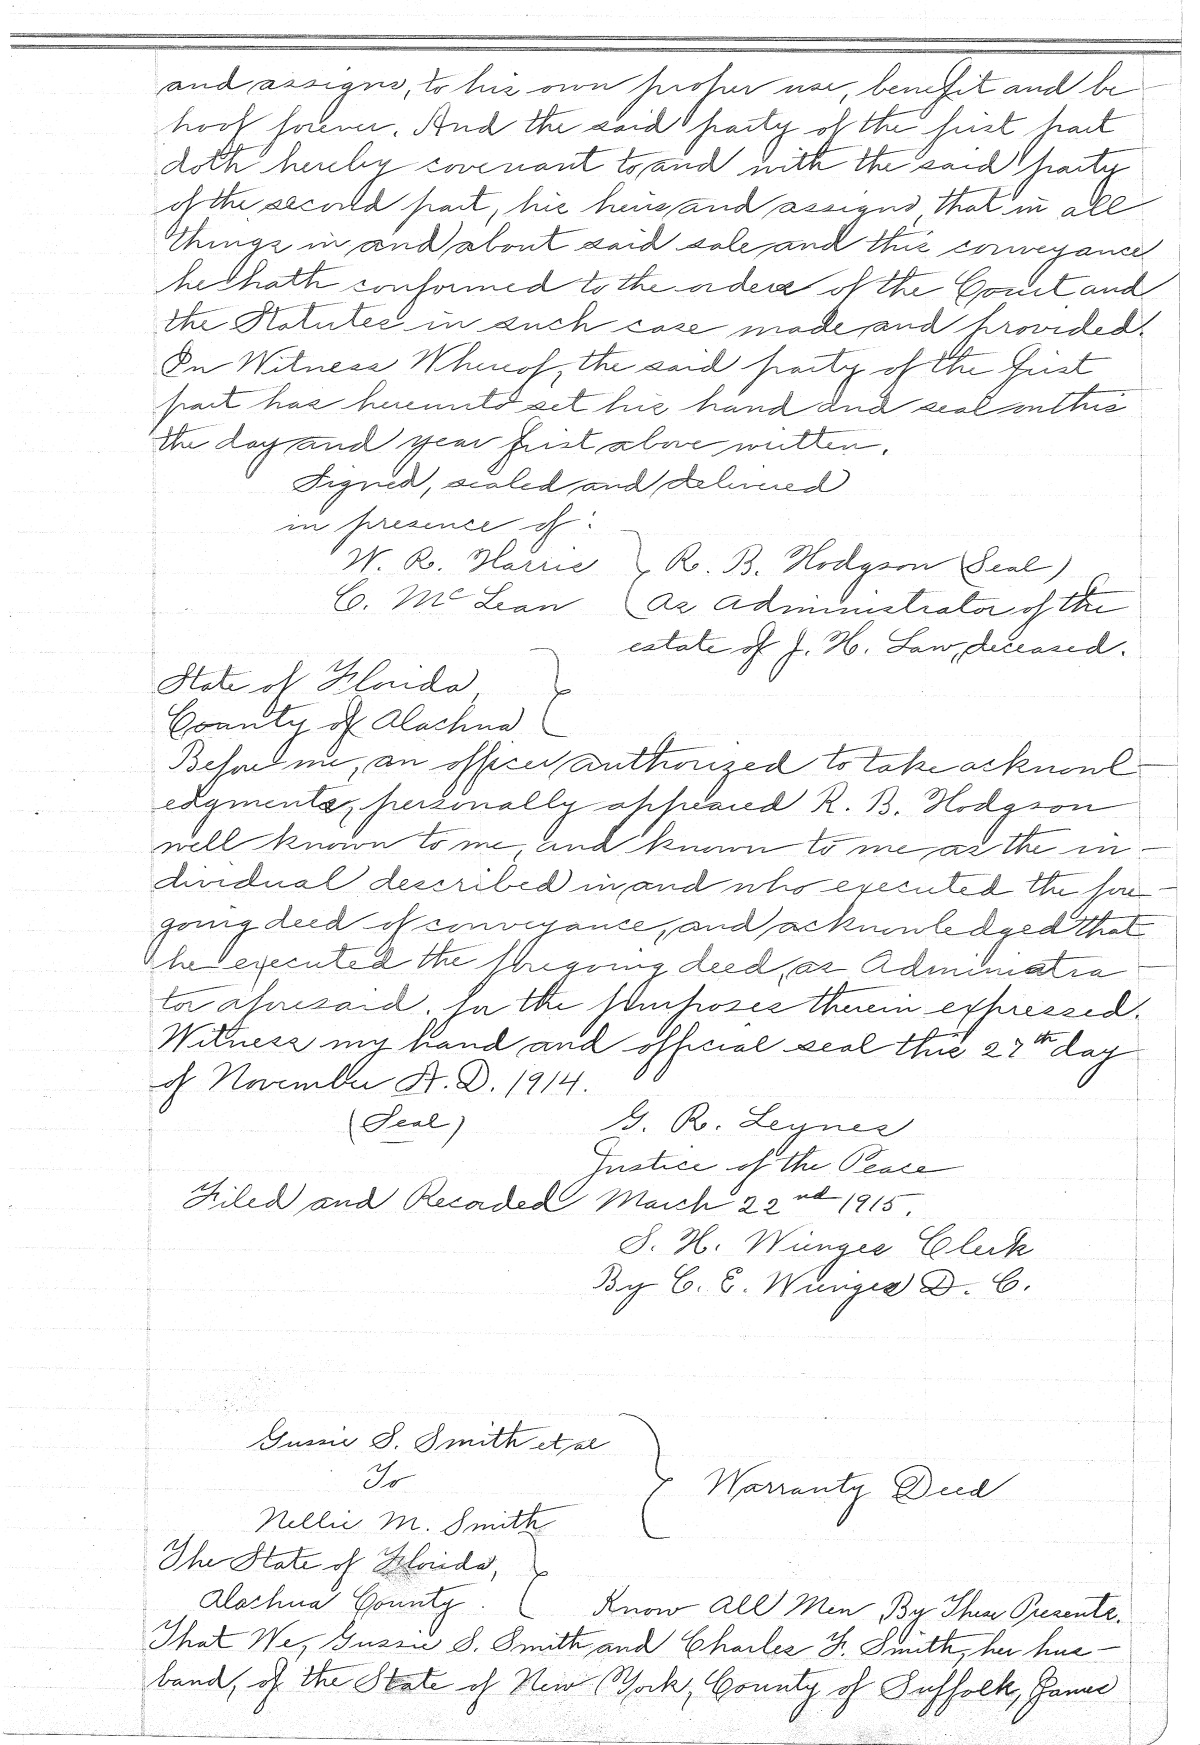 and assigns, to his own proper use, benefit and be
hoof forever. And the said party of the first part
doth hereby covenant to and with the said party
of the second part, his heirs and assigns, that in all
things in and about said sale and this conveyance
he hath conformed to the orders of the Court and
the Statutes in such case made and provided.
In Witness Whereof, the said party of the first
part has hereunto set his hand and seal on this
the day and year first above written.
Signed, sealed and delivered
in presence of:
W. R. Harris } R. B. Hodgson (Seal)
C. McLean } As Administrator of the
estate of J. H. Law, deceased.
State of Florida, }
County of Alachua }
Before me, an officer authorized to take acknowl-
edgments, personally appeared R. B. Hodgson
well known to me, and known to me as the in-
dividual described in and who executed the fore-
going deed of conveyance, and acknowledged that
he executed the foregoing deed, as Administra-
tor aforesaid. for the purposes therein expressed.
Witness my hand and official seal this 27th day
of November A. D. 1914.
(Seal) G. R. Leynes
Justice of the Peace
Filed and Recorded March 22nd 1915.
S. H. Wienges Clerk
By C. E. Wienges D. C.
Gussie S. Smith et al
To
Warranty Deed
Nellie M. Smith
The State of Florida, }
Alachua County. } Know All Men By These Presents.
That We, Gussie S. Smith and Charles F. Smith, her hus-
band, of the State of New York, County of Suffolk, James